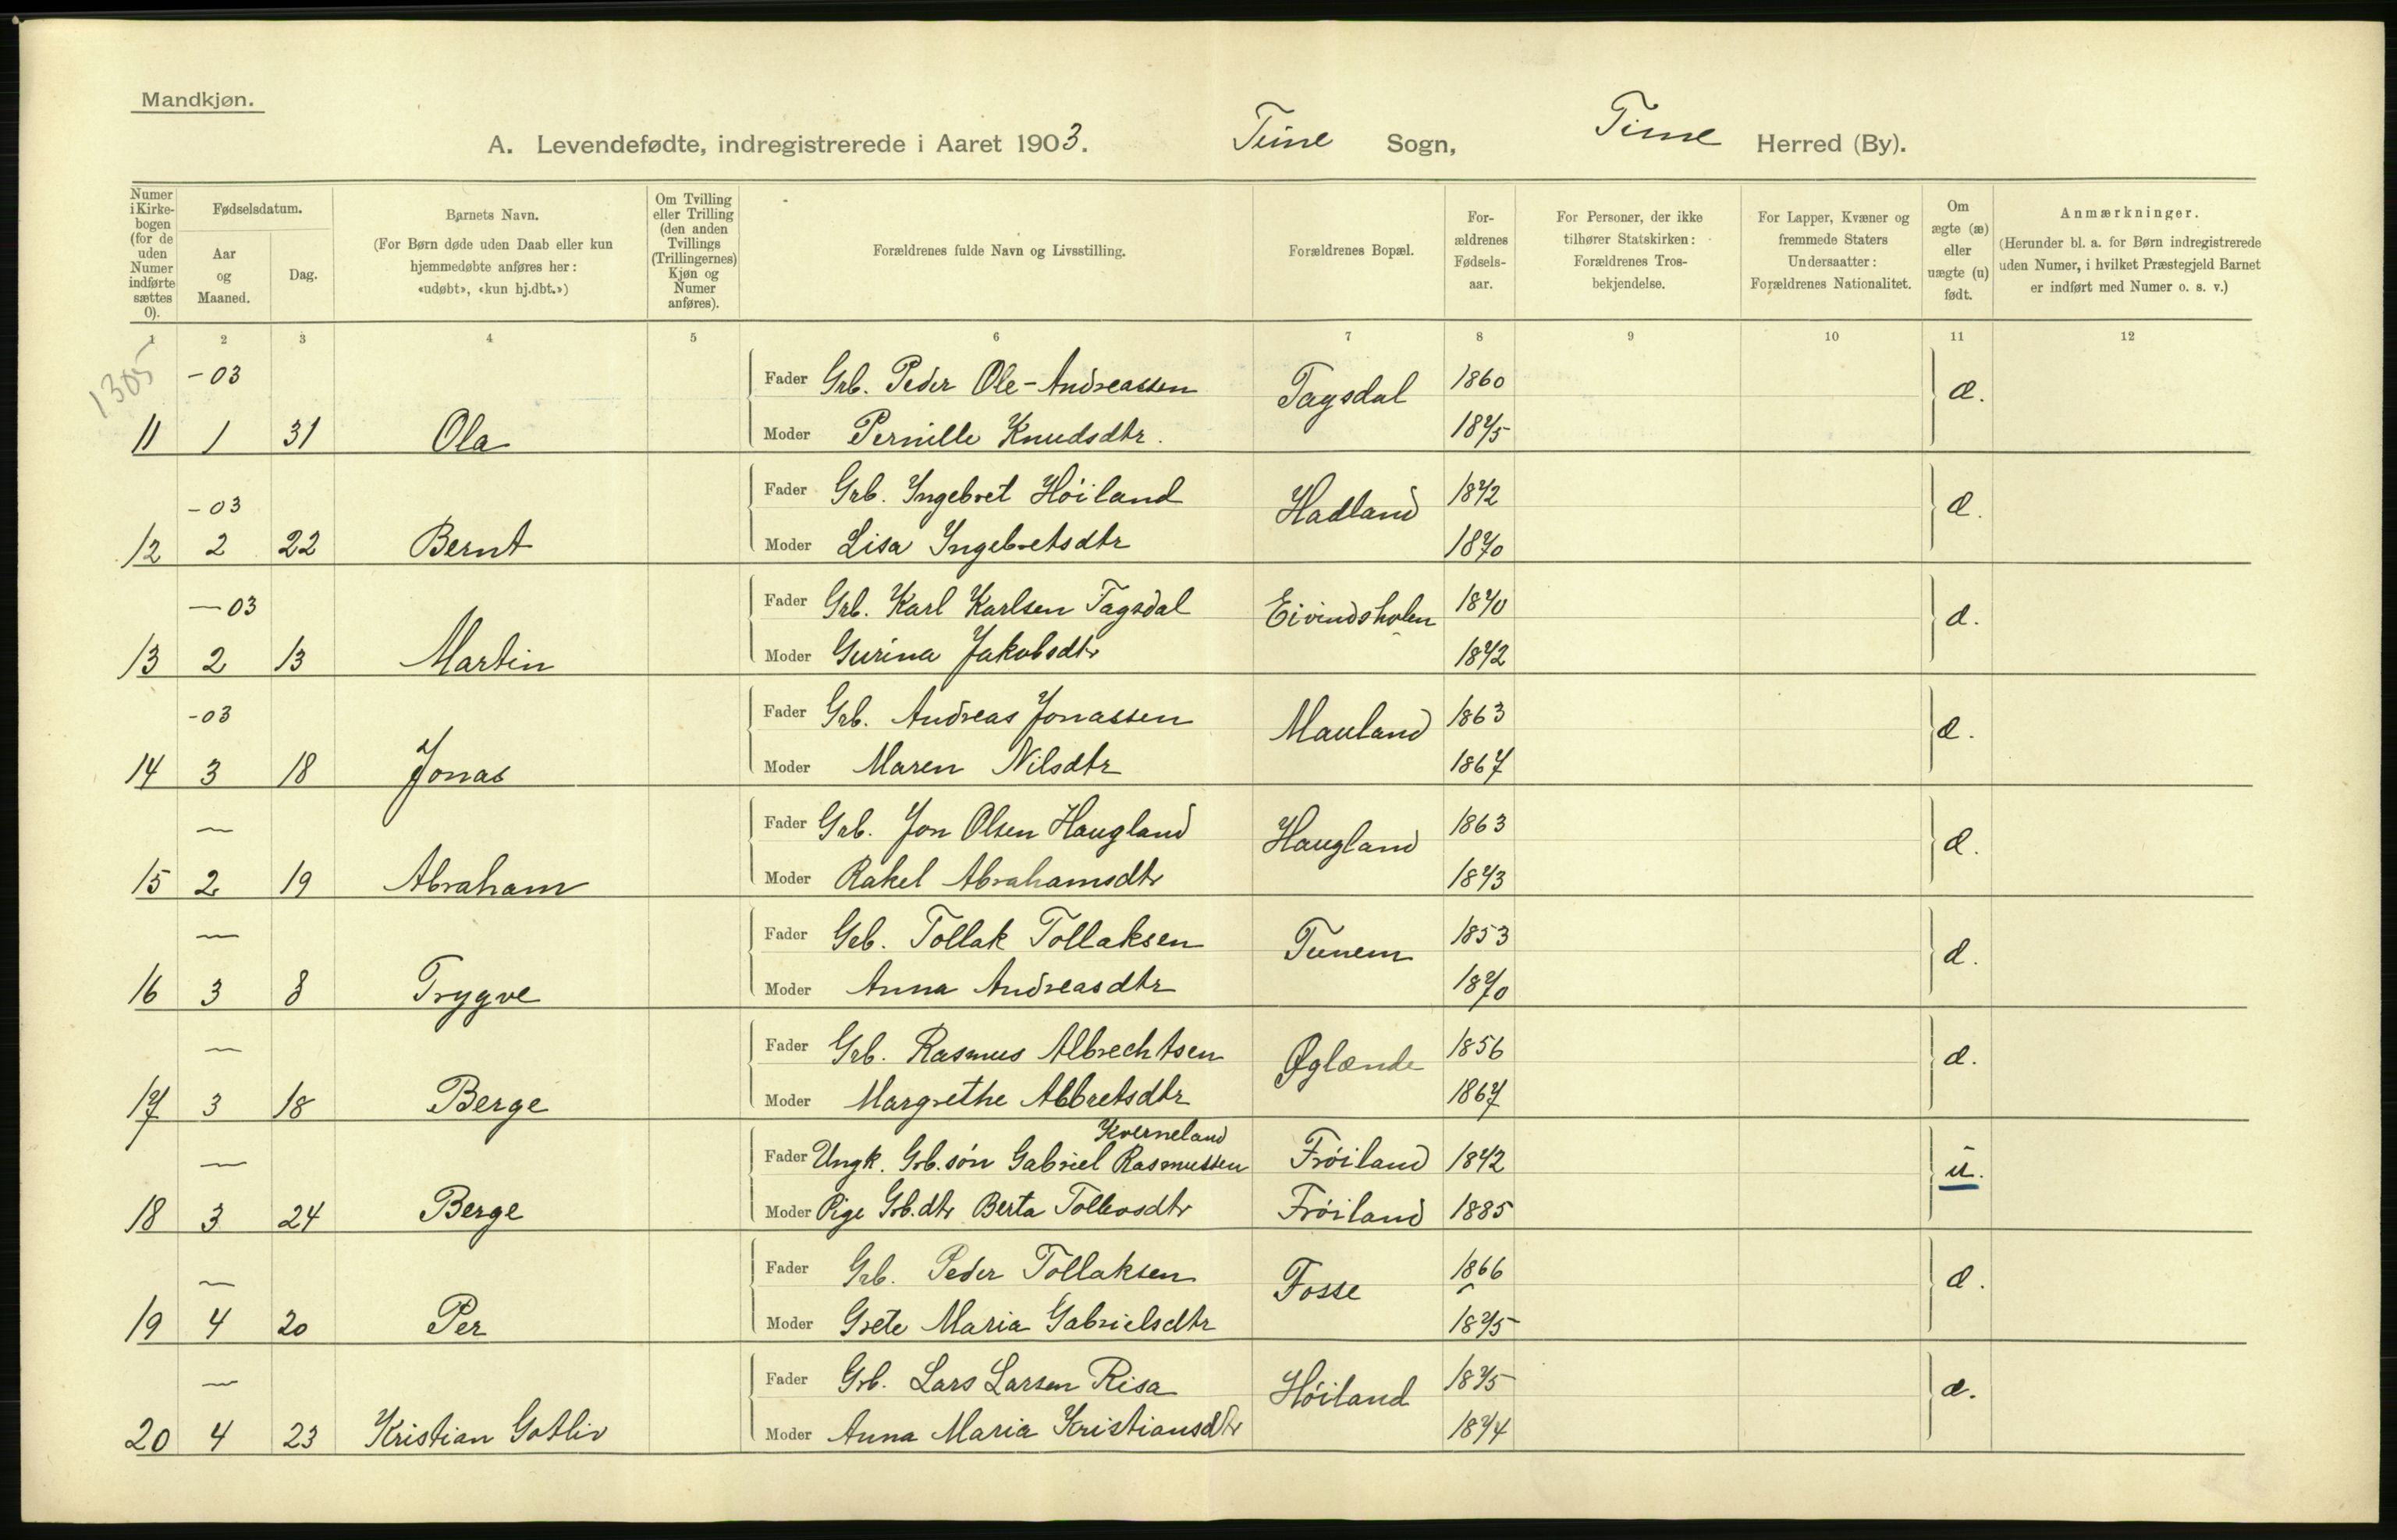 Mandkjøn.
A. Levendefødte, indregistrerede i Aaret 1903. Time Sogn, Time Herred (By).
Numer i Kirkebogen (for de uden Numer indførte sættes 0).
Fødselsdatum.
Aar og Maaned.
Dag.
Barnets Navn.
(For Børn døde uden Daab eller kun hjemmedøbte anføres her: «udøbt», «kun hj.dbt.»)
Om Tvilling eller Trilling (den anden Tvillings (Trillingernes) Kjøn og Numer anføres).
Forældrenes fulde Navn og Livsstilling.
Forældrenes Bopæl.
Forældrenes Fødselsaar.
For Personer, der ikke tilhører Statskirken: Forældrenes Trosbekjendelse.
For Lapper, Kvæner og fremmede Staters Undersaatter: Forældrenes Nationalitet.
Om ægte (æ) eller uægte (u) født.
Anmærkninger.
(Herunder bl. a. for Børn indregistrerede uden Numer, i hvilket Præstegjeld Barnet er indført med Numer o. s. v.)
1 2 3 4 5 6 7 8 9 10 11 12
1305
-03 Fader Grb. Peder Ole-Andreassen Tagsdal 1860 æ.
11 1 31 Ola Moder Pernille Knudsdtr. 1875
-03 Fader Grb. Ingebret Höiland Hadland 1872 æ.
12 2 22 Bernt Moder Lisa Ingebretsdtr 1870
-03 Fader Grb. Karl Karlsen Tagsdal Eivindsholen 1870 æ.
13 2 13 Martin Moder Gurina Jakobsdtr 1872
-03 Fader Grb. Andreas Jonassen Mauland 1863 æ.
14 3 18 Jonas Moder Maren Nilsdtr 1867
— Fader Grb. Jon Olsen Haugland Haugland 1863 æ.
15 2 19 Abraham Moder Rakel Abrahamsdtr 1873
— Fader Grb. Tollak Tollaksen Tunem 1853 æ.
16 3 8 Trygve Moder Anna Andreasdtr 1870
— Fader Grb. Rasmus Albrechtsen Øglænde 1856 æ.
17 3 18 Berge Moder Margrethe Albretsdtr 1867
Kverneland
— Fader Ungk. Grb.søn Gabriel Rasmussen Fröiland 1872 u.
18 3 24 Berge Moder Pige Grb.dtr Berta Tollevsdtr Fröiland 1885
— Fader Grb. Peder Tollaksen Fosse 1866 æ.
19 4 20 Per Moder Grete Maria Gabrielsdtr 1875
— Fader Grb. Lars Larsen Risa Höiland 1875 æ.
20 4 23 Kristian Gotliv Moder Anna Maria Kristiansdtr 1874